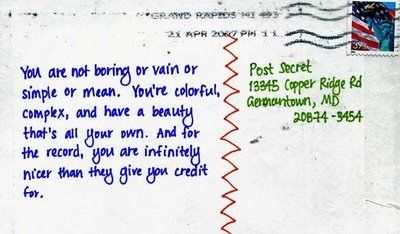 GRAND RAPIDS MI 493
21 APR 2007 PM 11
You are not boring or vain or
simple or mean. You're colorful,
complex, and have a beauty
that's all your own. And for
the record, you are infinitely
nicer than they give you credit
for.
Post Secret
13345 Copper Ridge Rd
Germantown, MD
20874-3454